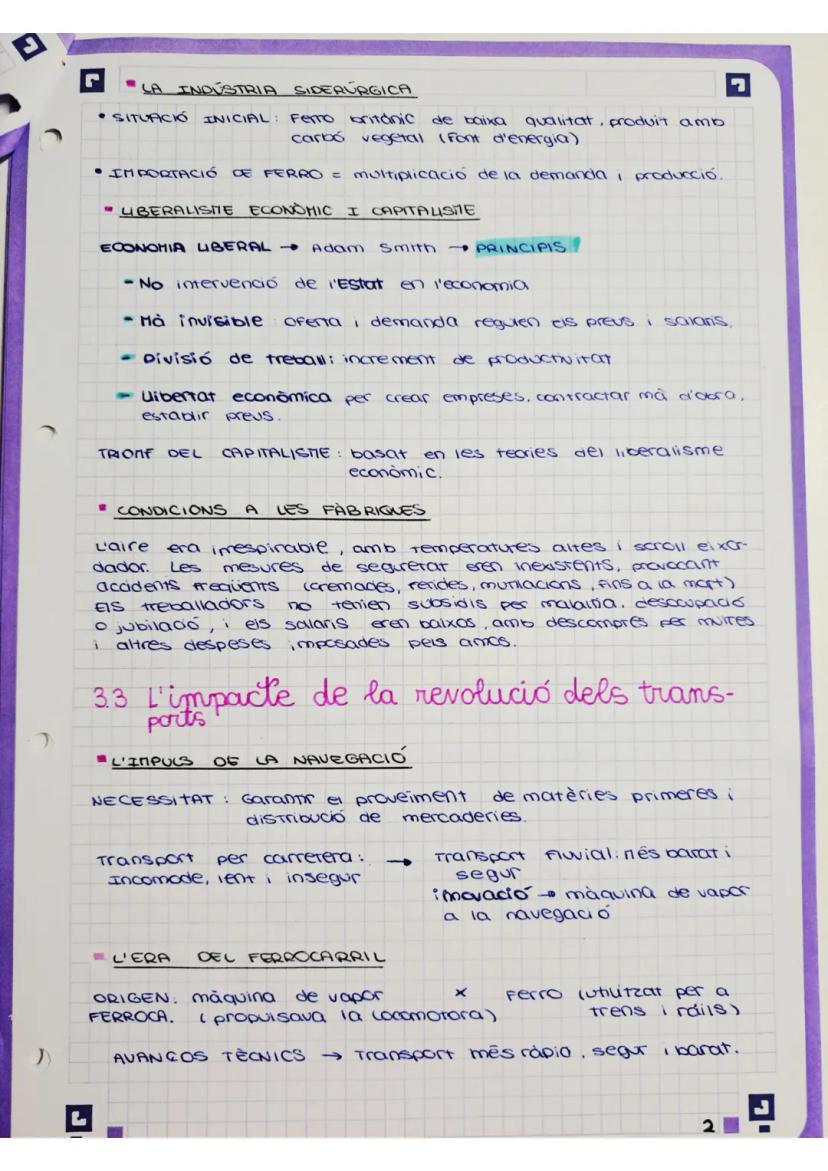 LA INDÚSTRIA SIDERÚRGICA
• SITUACIÓ INICIAL: Ferro britànic de baixa qualitat, produit amb
carbó vegetal (font d'energia)
• IMPORTACIÓ DE FERRO = multiplicació de la demanda i producció.
LIBERALISME ECONÒMIC I CAPITALISME
ECONOMIA LIBERAL → Adam Smith → PRINCIPIS
- No intervenció de l'Estat en l'economia
- Mà invisible oferta i demanda regulen els preus i salaris.
- Divisió de treball: increment de productivitat
- Llibertat econòmica per crear empreses, contractar mà d'obra,
establir preus.
TRIOMF DEL CAPITALISME: basat en les teories del liberalisme
econòmic.
CONDICIONS A LES FÀBRIQUES
L'aire era irrespirable, amb temperatures altes i soroll eixor-
dador. Les mesures de seguretat eren inexistents, provocant
accidents freqüents (cremades, ferides, mutilacions, fins a la mort)
Els treballadors no tenien subsidis per malaltia, desocupació
o jubilació, i els salaris eren baixos, amb descomptes per multes
i altres despeses imposades pels amos.
3.3 L'impacte de la revolució dels trans-
ports
L'IMPULS DE LA NAVEGACIÓ
NECESSITAT: Garantir el proveïment de matèries primeres i
distribució de mercaderies.
Transport per carretera: → Transport fluvial: més barat i
Incomode, lent i insegur segur
innovació → màquina de vapor
a la navegació
L'ERA DEL FERROCARRIL
ORIGEN: màquina de vapor x Ferro (utilitzat per a
FERROCA. (propulsava la locomotora) trens i raïls)
AVANÇOS TÈCNICS → Transport més ràpid, segur i barat.
2